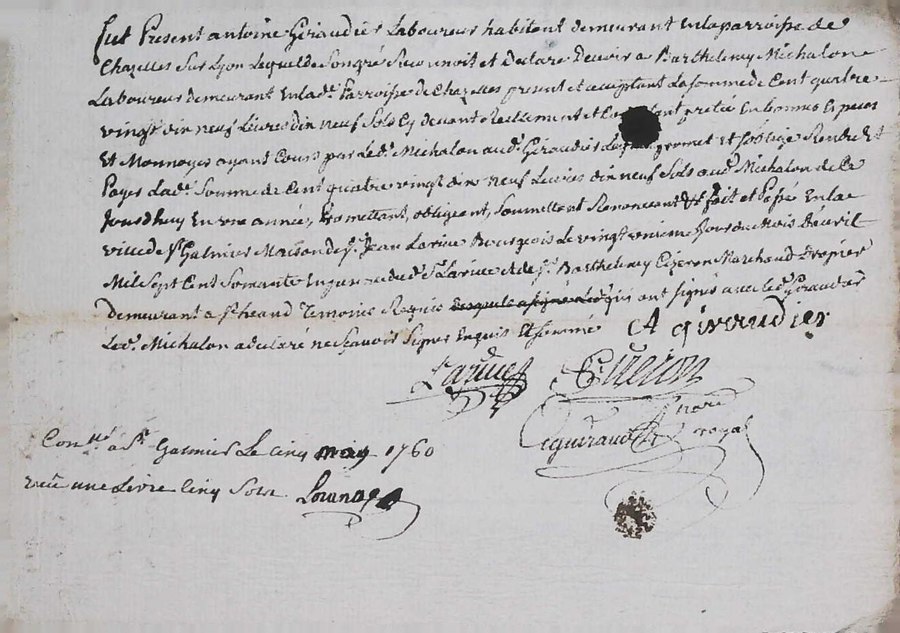 fut Present antoine Giraudier Laboureur habitant demeurant En la parroisse de
Chazelles Sur Lyon Lequel de Son gré Reconnoit et Declare Devoir a Barthelemy Michalon
Laboureur demeurant En lad. Parroisse de Chazelles present et acceptant La Somme de Cent quatre
vingt dix neuf Livres dix neuf Sols Cy devant Reellement et preté En bonnes Especes
Et Monnoyes ayant Cours par Led. Michalon aud. Giraudier promet et S'oblige Rendre Et
Payer Lad. Somme de Cent quatre vingt dix neuf Livres dix neuf Sols aud. Michalon de Ce
Jourdhuy En une année, Promettant, obligeant, Soumettant Renonceant &c fait et Passé En la
ville de St. Galmier Maison de Sr. Jean Larive Bourgeois Le vingt unieme Jour du Mois D'avril
Mil Sept Cent Soixante En presence dud. Sr. Larive et de Sr. Barthelemy Marchand Drapier
demeurant a St. heand Temoins Requis qui ont Signés avec Led. Giraudier
Led. Michalon a declaré ne Sçavoir Signer Enquis Et Sommé A giraudier
Larive
nore
royal
Con.llé a St. Galmier Le Cinq may 1760
reçu une Livre Cinq Sols